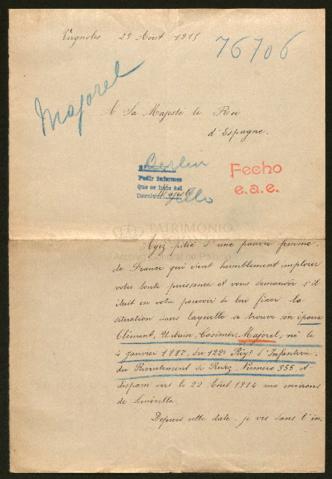 29 Août 1915
76706
Majorel
A Sa Majesté le Roi
d'Espagne.
Berlin
Pedir informes
Fecho
e.a.e.
PATRIMONIO
Ayez pitié d'une pauvre femme
de France qui vient humblement implorer
votre haute puissance et vous demander s'il
était en votre pouvoir de lui fixer la
situation dans laquelle se trouve son époux
Clément, Urbain, Casimir Majorel, né le
4 janvier 1882, du 122e Régt d'Infanterie,
du Recrutement de Rodez Numéro 956, et
disparu vers le 20 Août 1914 aux environs
de
Depuis cette date, je vis dans l'in